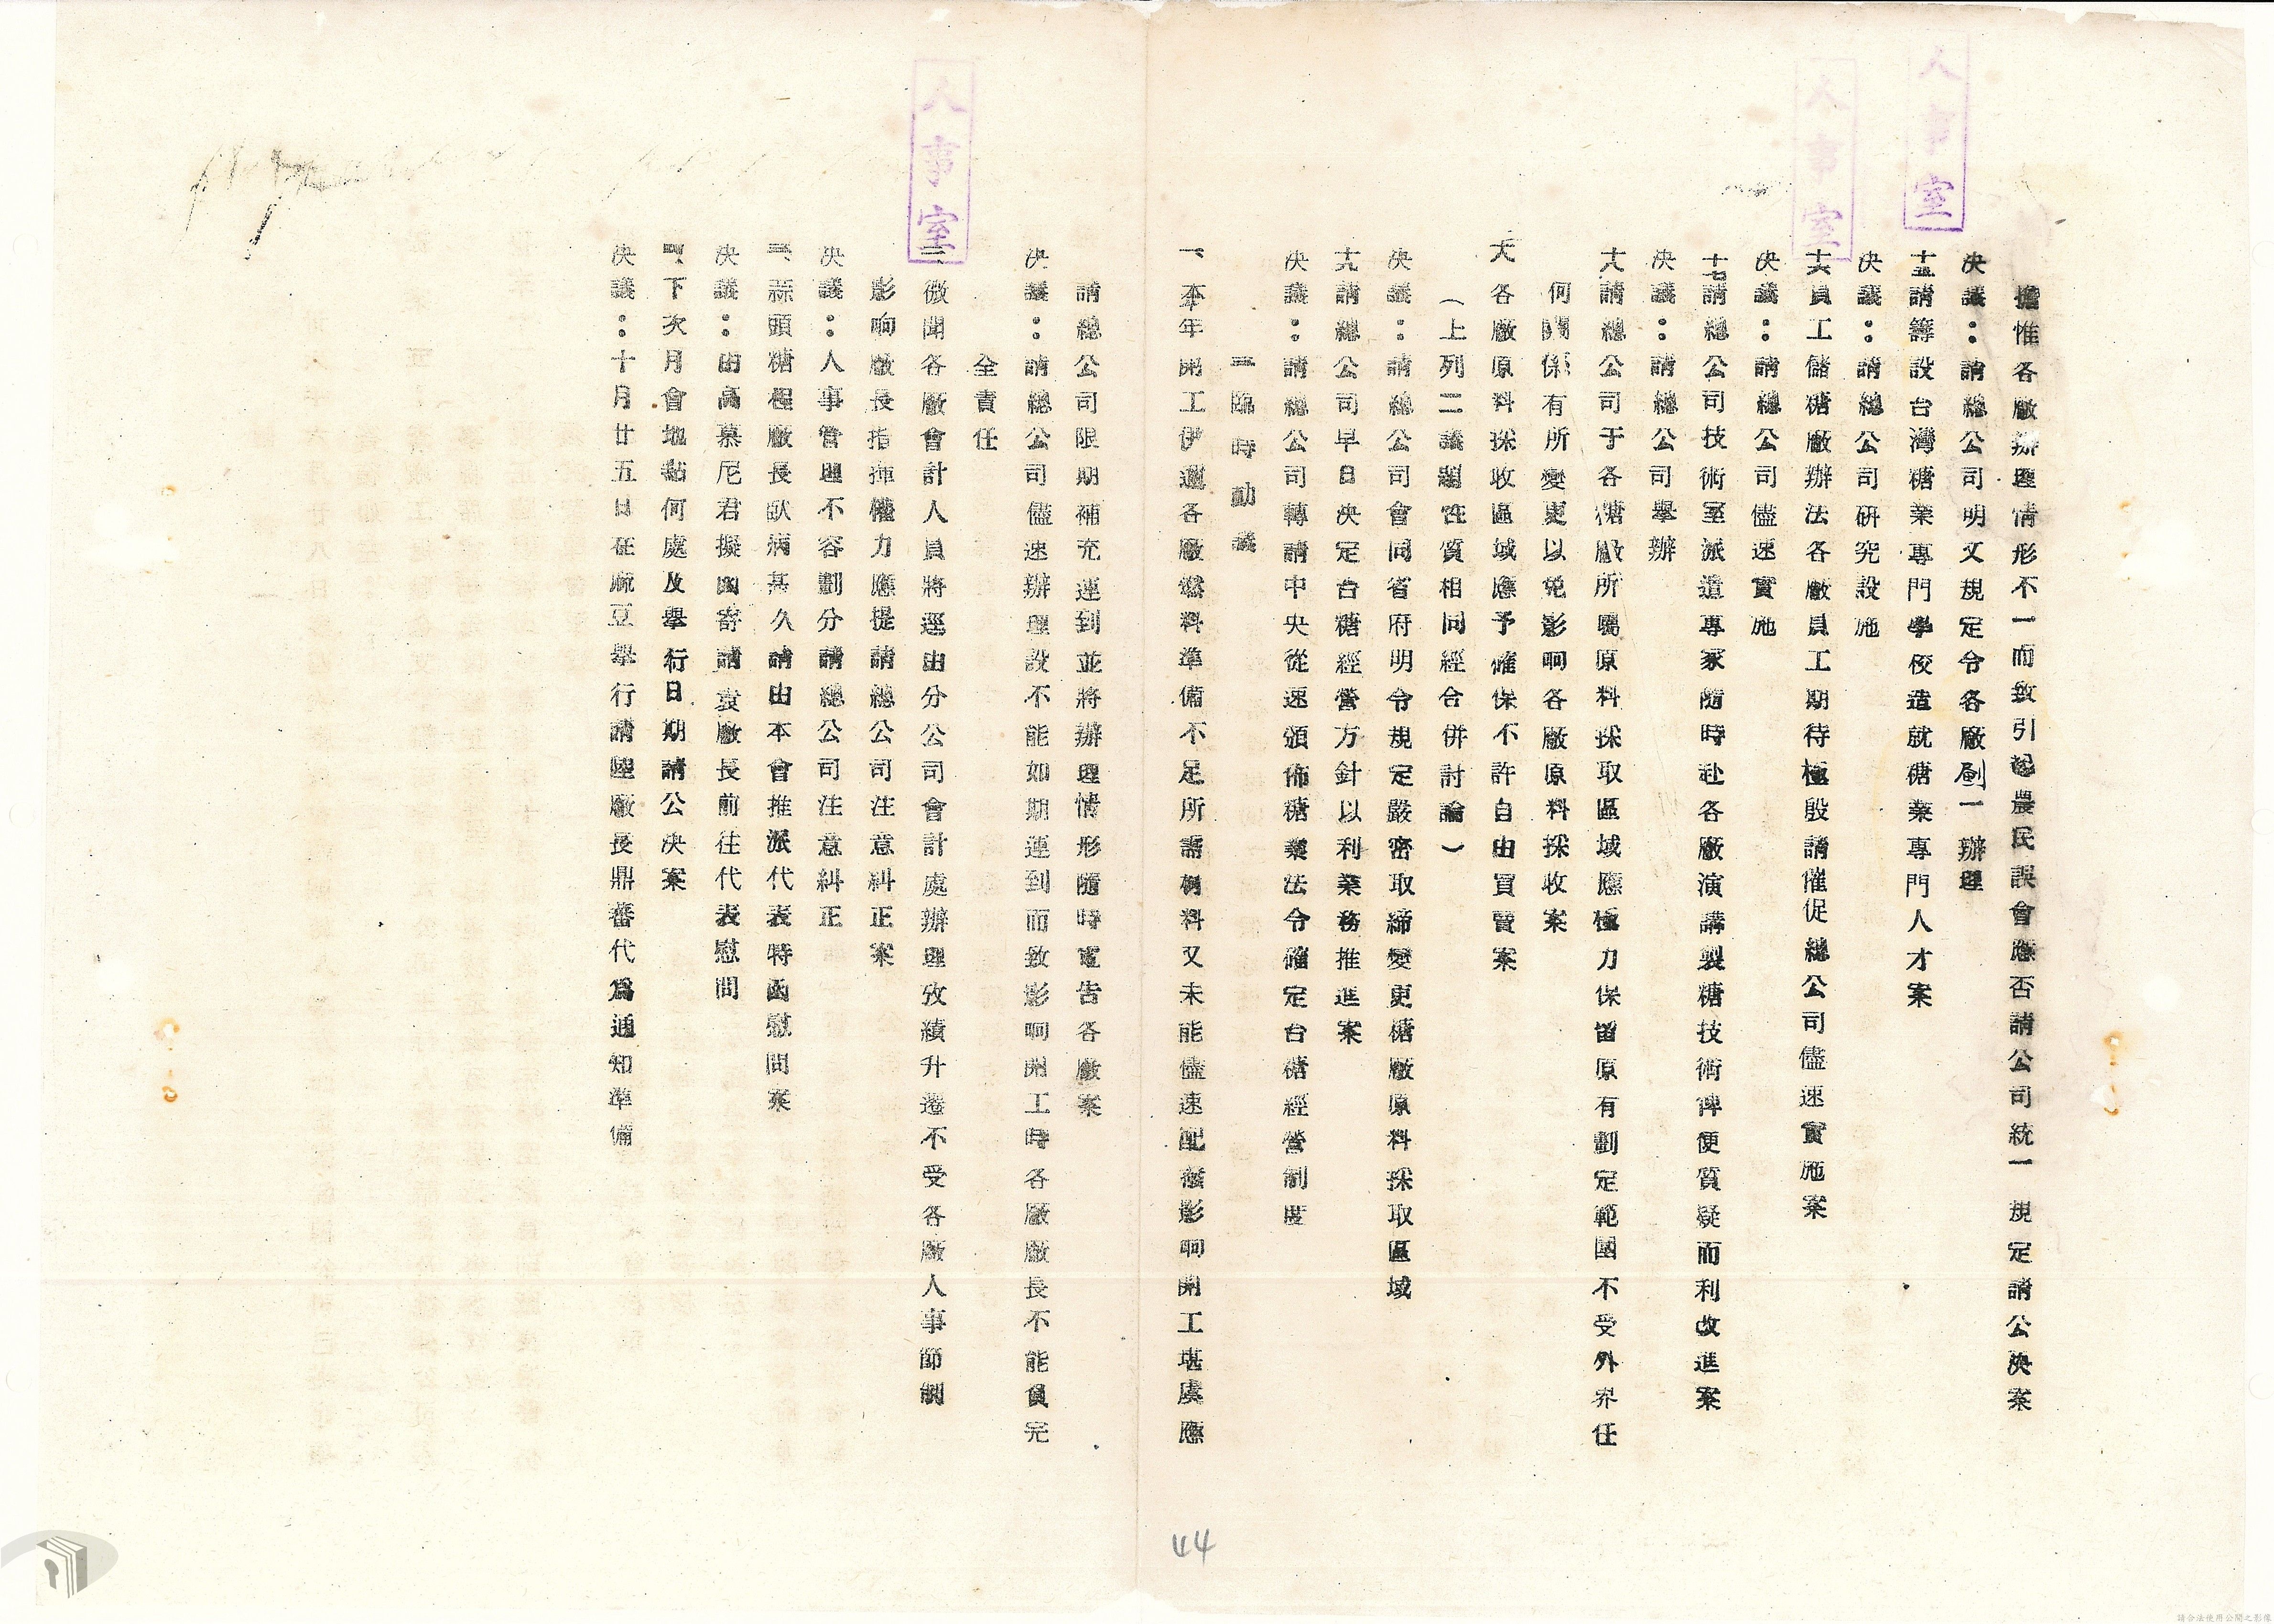 擔惟各廠辦理情形不一而致引起農民誤會應否請公司統一規定請公決案
決議：請總公司明文規定令各廠劃一辦理
十五請籌設台灣糖業專門學校造就糖業專門人才案
決議：請總公司研究設施
十六員工儲糖廠辦法各廠員工期待極殷請催促總公司儘速實施案
決議：請總公司儘速實施
十七請總公司技術室派遣專家隨時赴各廠演講製糖技術俾便質疑而利改進案
決議：請總公司舉辦
十八請總公司于各糖廠所屬原料採取區域應極力保留原有劃定範圍不受外界任
何關係有所變更以免影响各廠原料採收案
各廠原料採收區域應予確保不許自由買賣案
（上列二議題性質相同經合併討論）
決議：請總公司會同省府明令規定嚴密取締變更糖廠原料採取區域
十九請總公司早日決定台糖經營方針以利業務推進案
決議：請總公司轉請中央從速頒佈糖業法令確定台糖經營制度
三臨時動議
一、本年開工伊邇各廠燃料準備不足所需材料又未能儘速配發影响開工堪虞應
請總公司限期補充運到並將辦理情形隨時電告各廠案
決議：請總公司儘速辦理設不能如期運到而致影响開工時各廠廠長不能負完
全責任
二、微聞各廠會計人員將逕由分公司會計處辦理攷績升遷不受各廠人事節制
影响廠長指揮權力應提請總公司注意糾正案
決議：人事管理不容劃分請總公司注意糾正
三、蒜頭糖糧廠長臥病甚久請由本會推派代表特函慰問案
決議：由高慕尼君擬函寄請袁廠長前往代表慰問
四、下次月會地點何處及舉行日期請公決案
決議：十月廿五日在麻豆舉行請陸廠長鼎蕃代爲通知準備
人事室
人事室
人事室
44
請合法使用公開之影像